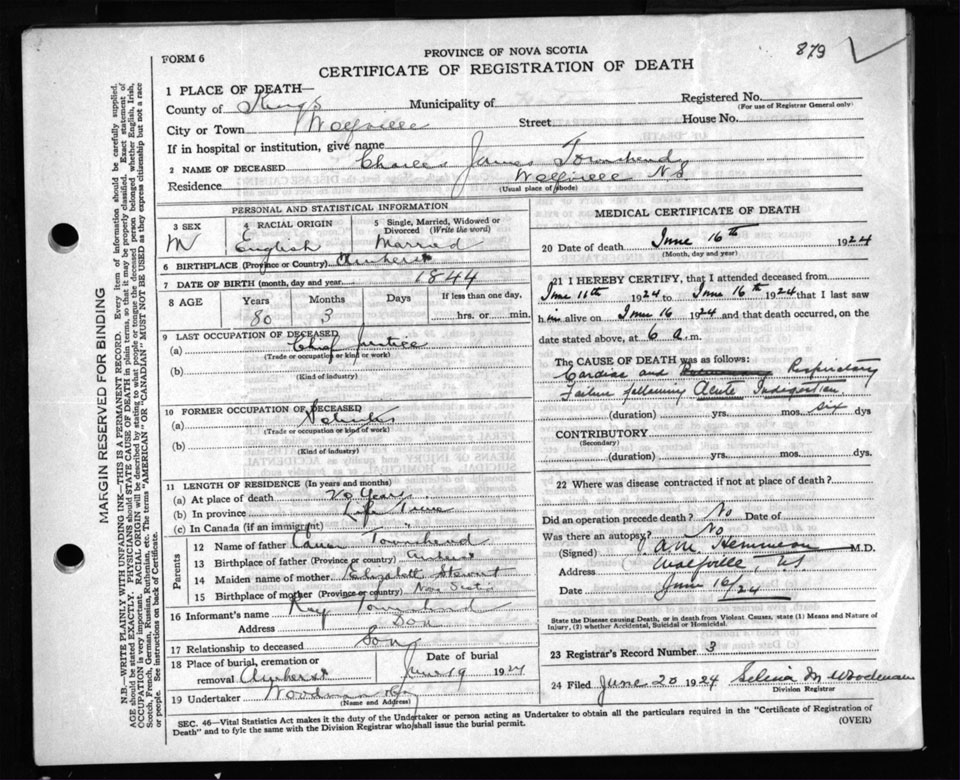 PROVINCE OF NOVA SCOTIA
879
FORM 6
CERTIFICATE OF REGISTRATION OF DEATH
1 PLACE OF DEATH—
County of Kings Municipality of Registered No.
(For use of Registrar General only)
City or Town Wolfville Street House No.
If in hospital or institution, give name
2 NAME OF DECEASED Charles James Townshend
Residence Wolfville NS
(Usual place of abode)
PERSONAL AND STATISTICAL INFORMATION
3 SEX 4 RACIAL ORIGIN 5 Single, Married, Widowed or Divorced (Write the word)
M English Married
6 BIRTHPLACE (Province or Country) Amherst
7 DATE OF BIRTH (month, day and year) 1844
8 AGE Years Months Days If less than one day,
80 3 hrs. or min.
9 LAST OCCUPATION OF DECEASED
(a) Chief Justice
(Trade or occupation or kind of work)
(b)
(Kind of industry)
10 FORMER OCCUPATION OF DECEASED
(a)
(Trade or occupation or kind of work)
(b)
(Kind of industry)
11 LENGTH OF RESIDENCE (In years and months)
(a) At place of death 20 Years
(b) In province Life Time
(c) In Canada (if an immigrant) "
Parents
12 Name of father Townshend
13 Birthplace of father (Province or country) Amherst
14 Maiden name of mother Elizabeth Stewart
15 Birthplace of mother (Province or country) Nova Scotia
16 Informant's name Townshend
Address
17 Relationship to deceased Son
18 Place of burial, cremation or Date of burial
removal Amherst June 19 1924
19 Undertaker Woodman
(Name and Address)
MEDICAL CERTIFICATE OF DEATH
20 Date of death June 16th 1924
(Month, day and year)
21 I HEREBY CERTIFY, that I attended deceased from
June 11th 1924 to June 16th 1924 that I last saw
him alive on June 16 1924 and that death occurred, on the
date stated above, at 6 a.m.
The CAUSE OF DEATH was as follows:
Cardiac and Respiratory
Failure following Acute Indigestion
(duration) yrs. mos. six dys
CONTRIBUTORY
(Secondary)
(duration) yrs. mos. dys.
22 Where was disease contracted if not at place of death?
Did an operation precede death? No Date of
Was there an autopsy? No
(Signed) M.D.
Address Wolfville, NS
Date June 16/24
State the Disease causing Death, or in death from Violent Causes, state (1) Means and Nature of
Injury, (2) whether Accidental, Suicidal or Homicidal.
23 Registrar's Record Number 3
24 Filed June 20 1924 Selina M Woodman
Division Registrar
SEC. 46—Vital Statistics Act makes it the duty of the Undertaker or person acting as Undertaker to obtain all the particulars required in the "Certificate of Registration of
Death" and to fyle the same with the Division Registrar who shall issue the burial permit.
(OVER)
MARGIN RESERVED FOR BINDING
N.B.—WRITE PLAINLY WITH UNFADING INK—THIS IS A PERMANENT RECORD. Every item of information should be carefully supplied.
AGE should be stated EXACTLY. PHYSICIANS should STATE CAUSE OF DEATH in plain terms, so that it may be properly classified. Exact statement of
OCCUPATION is very important. RACIAL ORIGIN will be described by stating to what people or tongue the deceased person belonged whether English, Irish,
Scotch, French, German, Russian, Ruthenian, etc. The terms "AMERICAN" or "CANADIAN" MUST NOT BE USED as they express citizenship but not a race
or people. See instructions on back of Certificate.